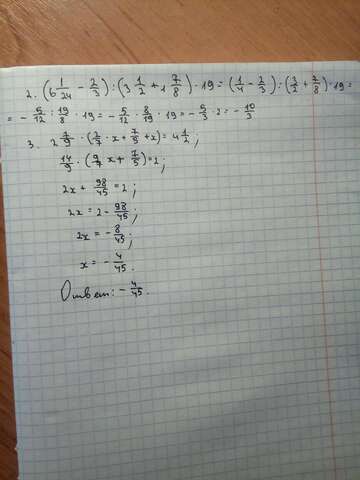 2. (6 1/24 - 2/3) : (3 1/2 + 1 7/8) · 19 = (1/4 - 2/3) : (3/2 + 7/8) · 19 =
= - 5/12 : 19/8 · 19 = - 5/12 · 8/19 · 19 = - 5/3 · 2 = - 10/3
3. 2 7/9 · (2/7 · x + 7/5 + x) = 4 1/2;
14/9 · (9/7 x + 7/5) = 2;
2x + 98/45 = 2;
2x = 2 - 98/45;
2x = - 8/45;
x = - 4/45.
Ответ: - 4/45.